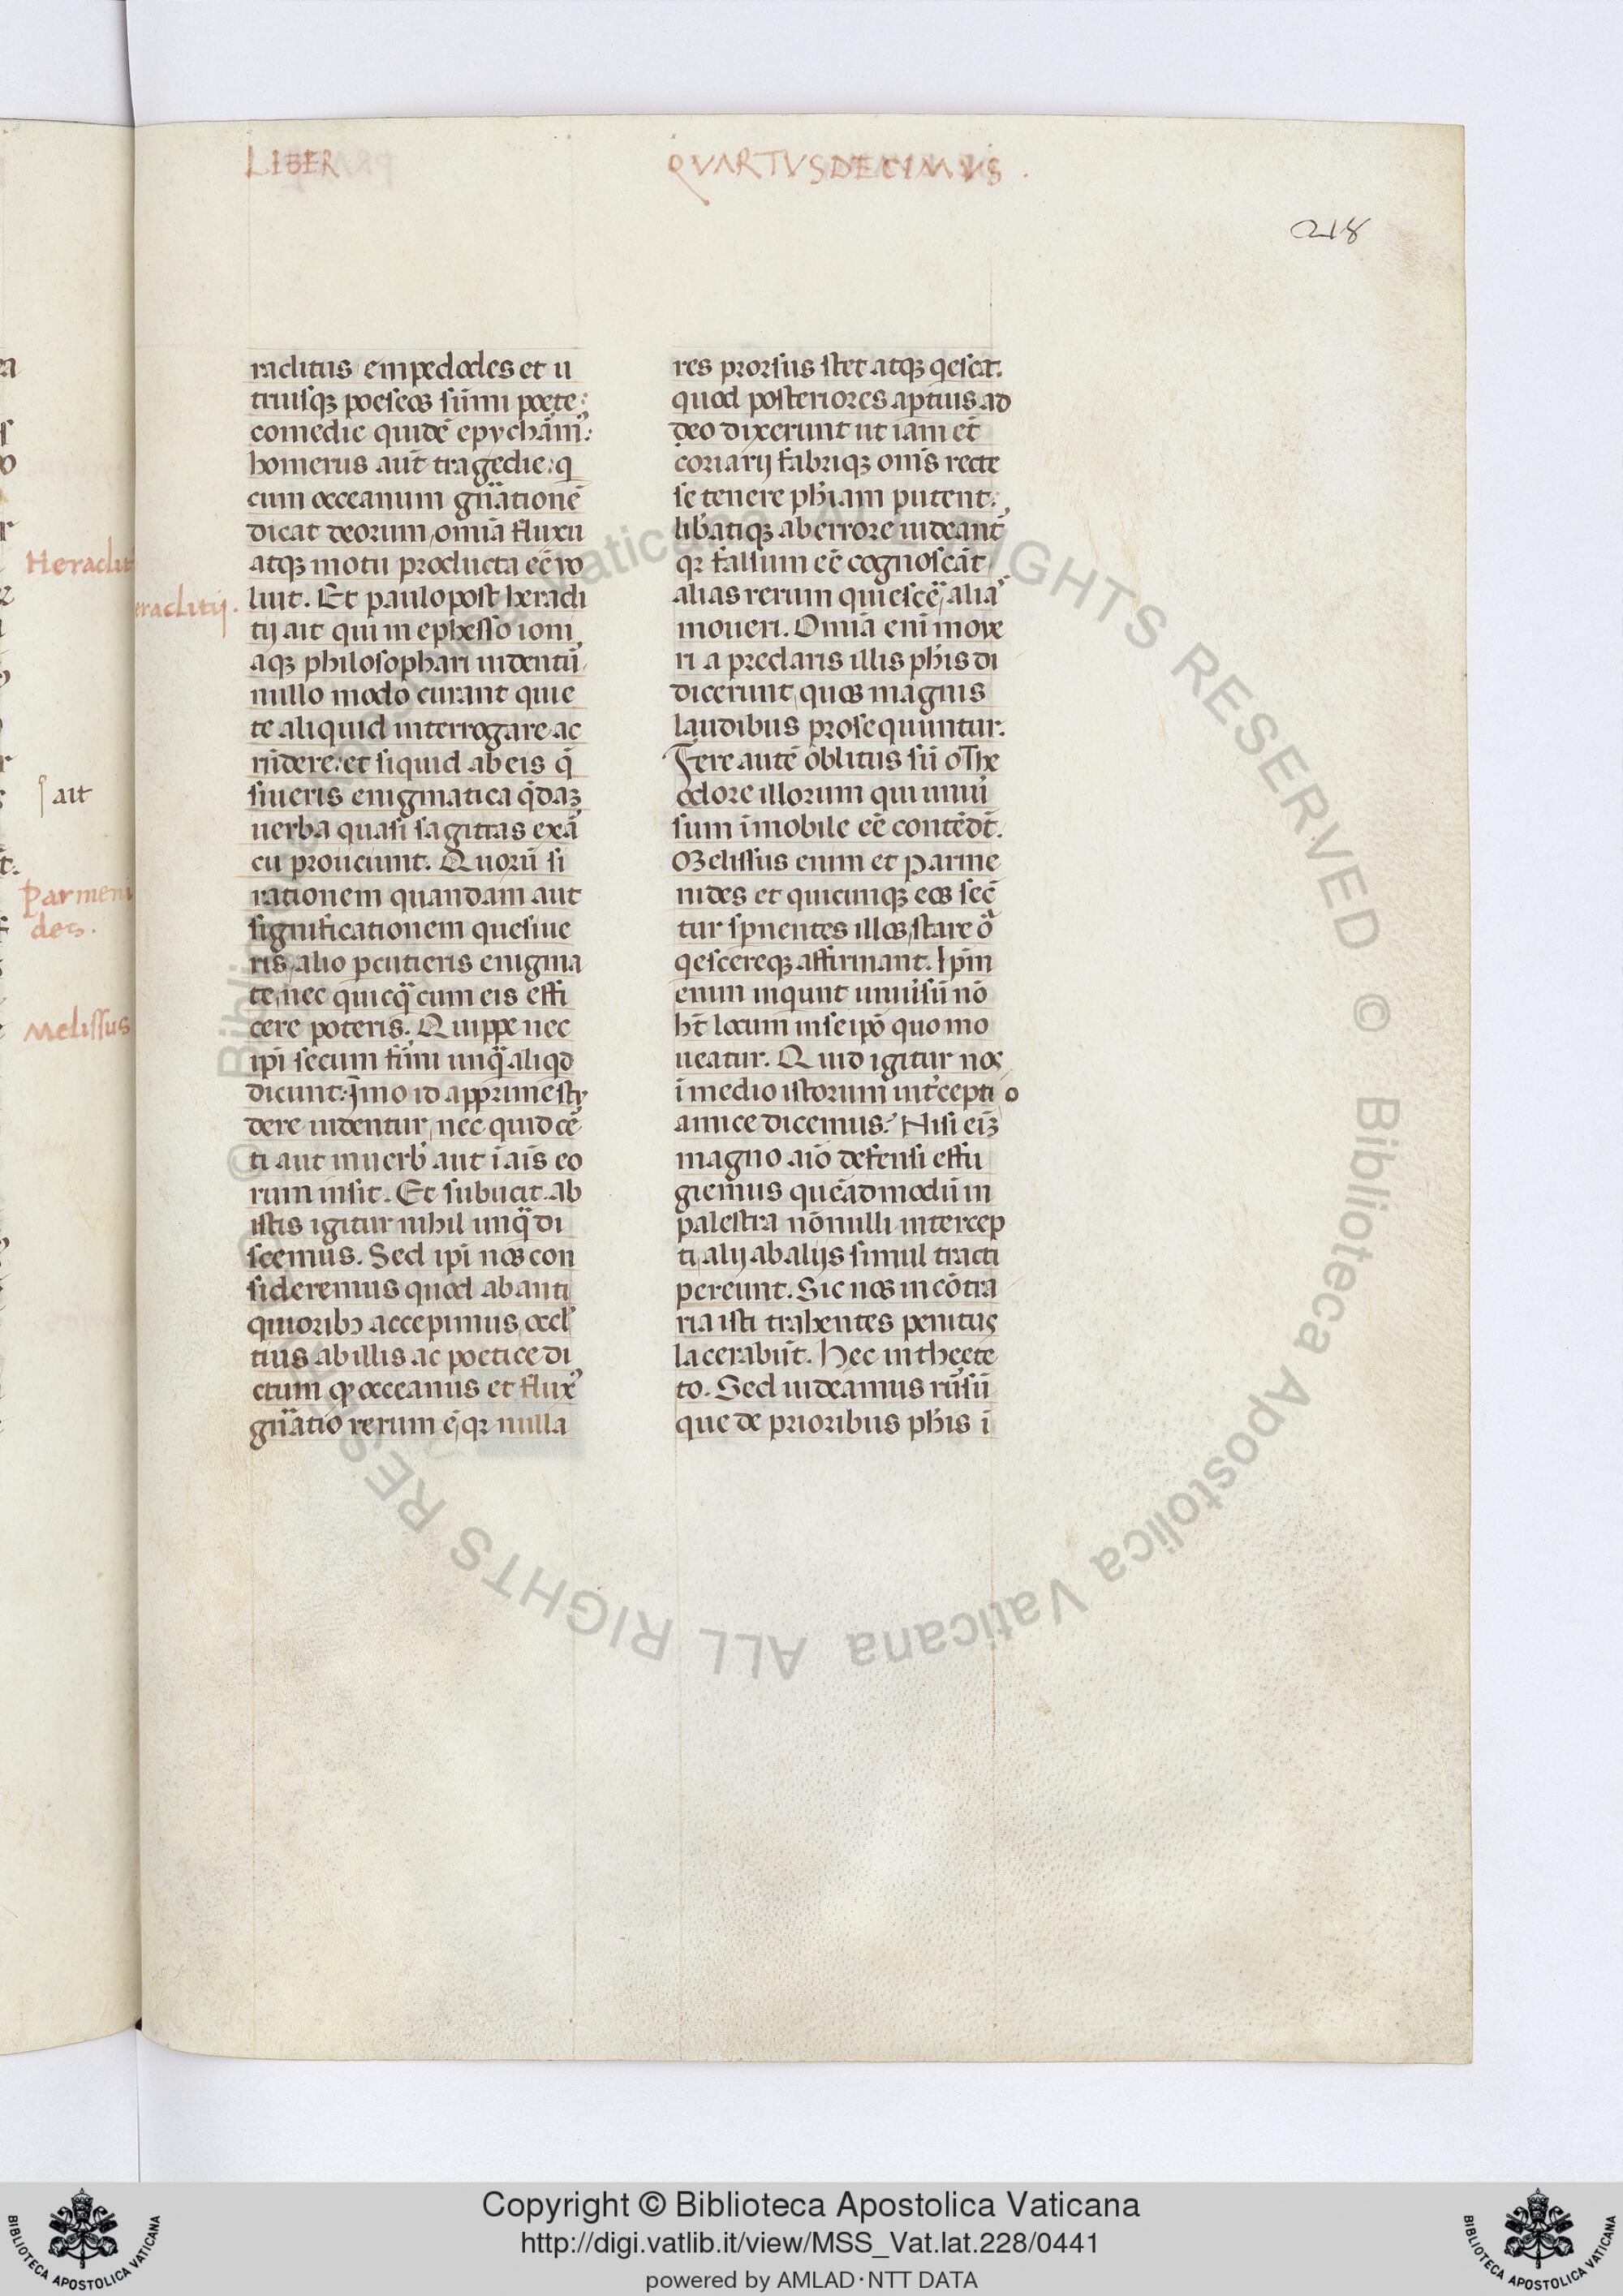 LIBER
QVARTVSDECIMVS .
218
raclitus empedocles et u
triusqꝫ poeseos sūmi poete:
comedie quidē epychāmꝰ:
homerus aūt tragedie: q
cum occeanum gn̄ationē
dicat deorum, omīa fluxu
atqꝫ motu producta eē uo
luit. Et paulo post heracli
tij ait qui in ephesso ioni
aqꝫ philosophari uidentur,
nullo modo curant quie
te aliquid interrogare ac
rn̄dere: et siquid ab eis q̄
siueris enigmatica q̄daꝫ
uerba quasi sagittas exā
eu proiiciunt. Quorū si
rationem quandam aut
significationem quesiue
ris, alio pcutieris enigma
te, nec quicq̄ cum eis effi
cere poteris. Quippe nec
ipi secum firmi unq̄ aliqd
dicunt: Īmo id apprime stu
dere uidentur, nec quid cer
ti aut in uerb aut ī aīs eo
rum insit. Et subiicit. ab
istis igitur nihil unq̄ di
scemus. Sed ipi nos con
sideremus quod ab anti
quioribꝫ accepimus, occl
tius ab illis ac poetice di
ctum ꝙ occeanus et fluxꝰ
gn̄atio rerum ē, qr nulla
res prorsus stet atqꝫ qescat.
quod posteriores aptius ad
deo dixerunt ut iam et
coriarij fabriqꝫ om̄s recte
se tenere phīam putent:
libatiqꝫ ab errore uideant
qr falsum eē cognoscāt
alias rerum quiescē, aliaˢ
moueri. Omīa enī moue
ri a preclaris illis phīs di
dicerunt, quos magnis
laudibus prosequuntur.
Fere autē oblitus sū o The
odore illorum qui uniū
sum īmobile eē contēdt.
Melissus enim et Parme
nides et quicunqꝫ eos sec̄
tur spnentes illos, stare oīa
qescereqꝫ affirmant. Ipm̄
enim inqunt uniūsū nō
ht̄ locum in seipo quo mo
ueatur. Quid igitur nos
ī medio istorum intercepti o
amice dicemus? Nisi eīꝫ
magno aīo defensi effu
giemus quēadmodū in
palestra nōnulli intercep
ti, alij ab alijs simul tracti
pereunt. Sic nos in cōtra
ria isti trahentes penitus
lacerabūt. Hec in theete
to. Sed uideamus rūsū
que de prioribus phīs ī
Heraclit
eraclitij.
ait
Parmeni
des.
Melissus
© Biblioteca Apostolica Vaticana ALL RIGHTS RESERVED © Biblioteca Apostolica Vaticana ALL RIGHTS RES
Copyright © Biblioteca Apostolica Vaticana
http://digi.vatlib.it/view/MSS_Vat.lat.228/0441
powered by AMLAD·NTT DATA
BIBLIOTECA APOSTOLICA VATICANA
BIBLIOTECA APOSTOLICA VATICANA